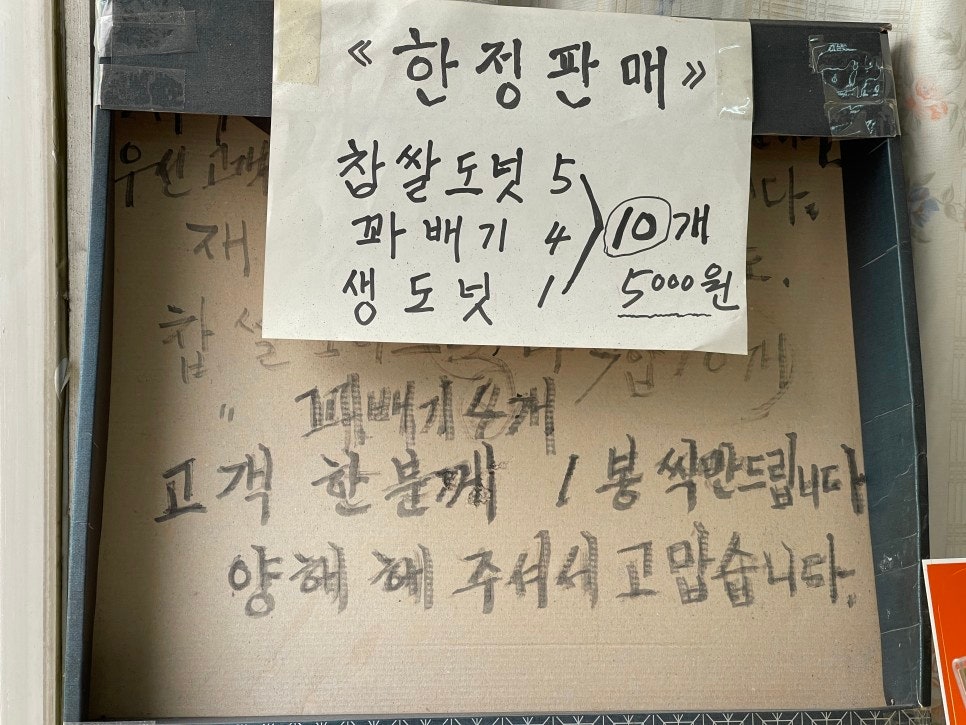 《한정판매》
찹쌀도넛 5
꽈배기 4
생도넛 1
10개
5000원
우선고객
재
찹쌀
" 꽈배기 4개
고객 한분께 1봉 싹만드립니다
양해해 주셔서 고맙습니다.